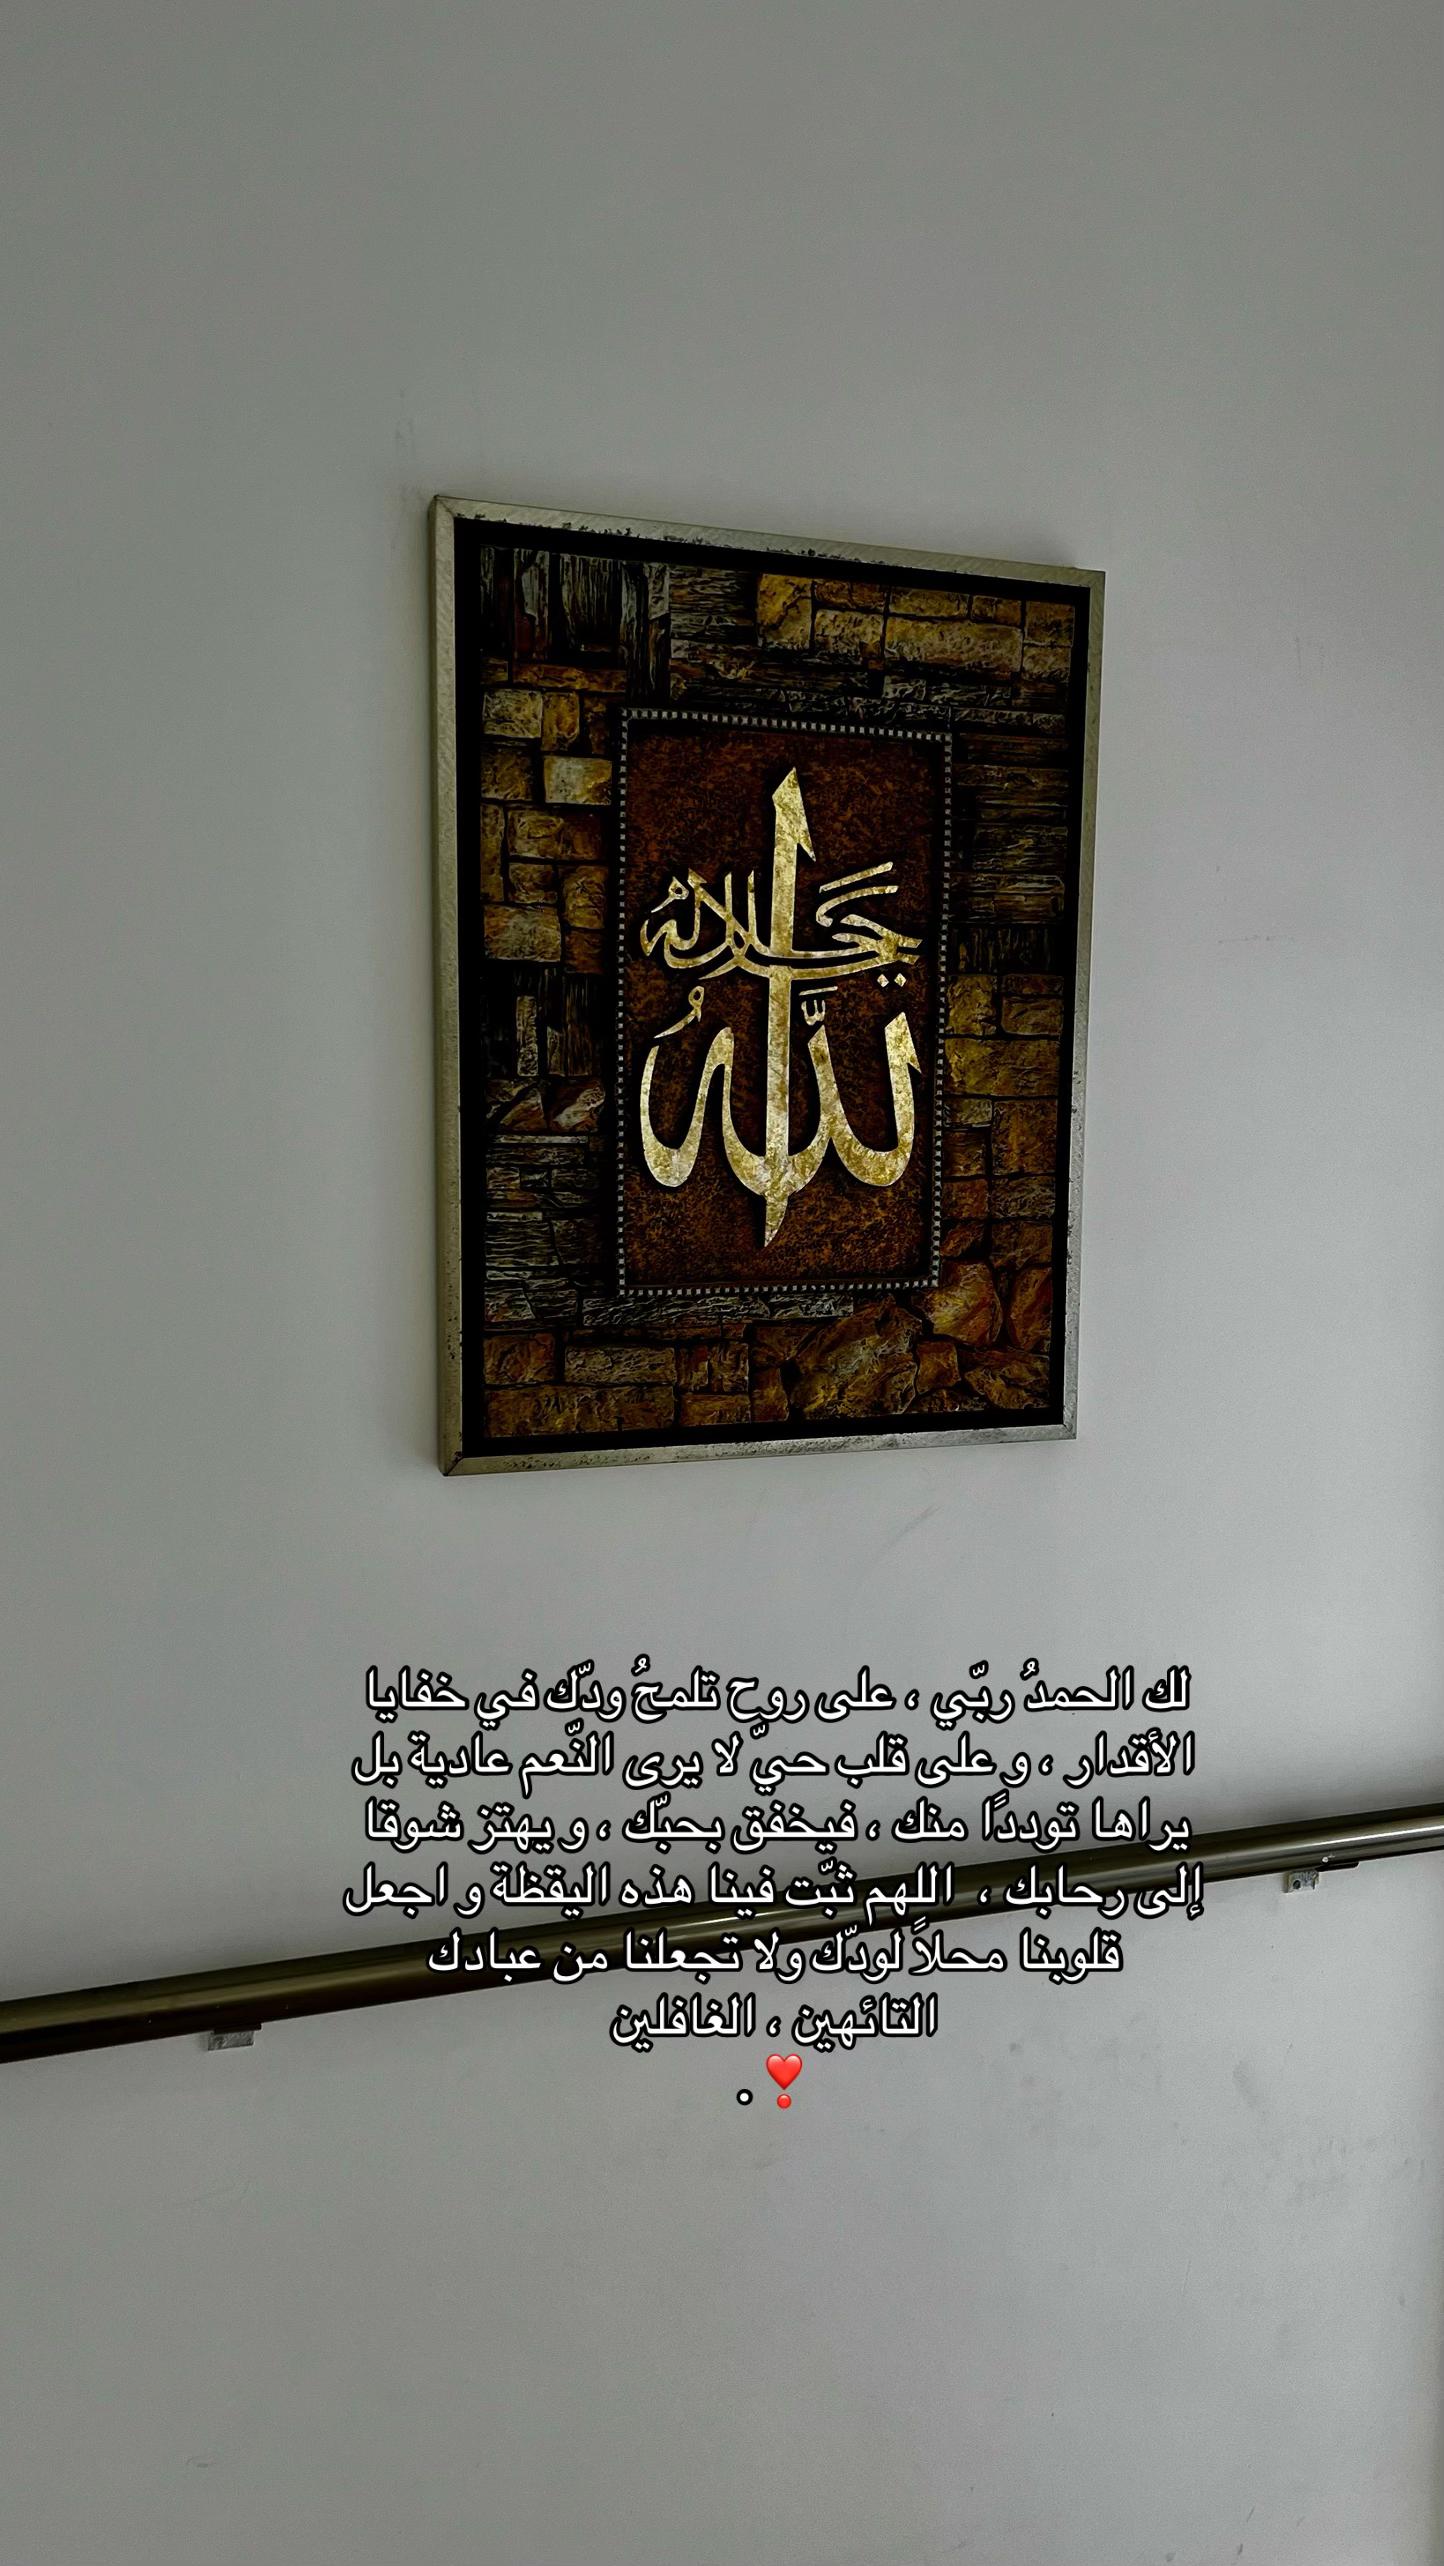 جل جلاله
الله
لك الحمدُ ربّي ، على روح تلمحُ ودّك في خفايا
الأقدار ، و على قلب حيّ لا يرى النّعم عادية بل
يراها توددًا منك ، فيخفق بحبّك ، و يهتز شوقا
إلى رحابك ، اللهم ثبّت فينا هذه اليقظة و اجعل
قلوبنا محلاً لودّك ولا تجعلنا من عبادك
التائهين ، الغافلين
❣️ •